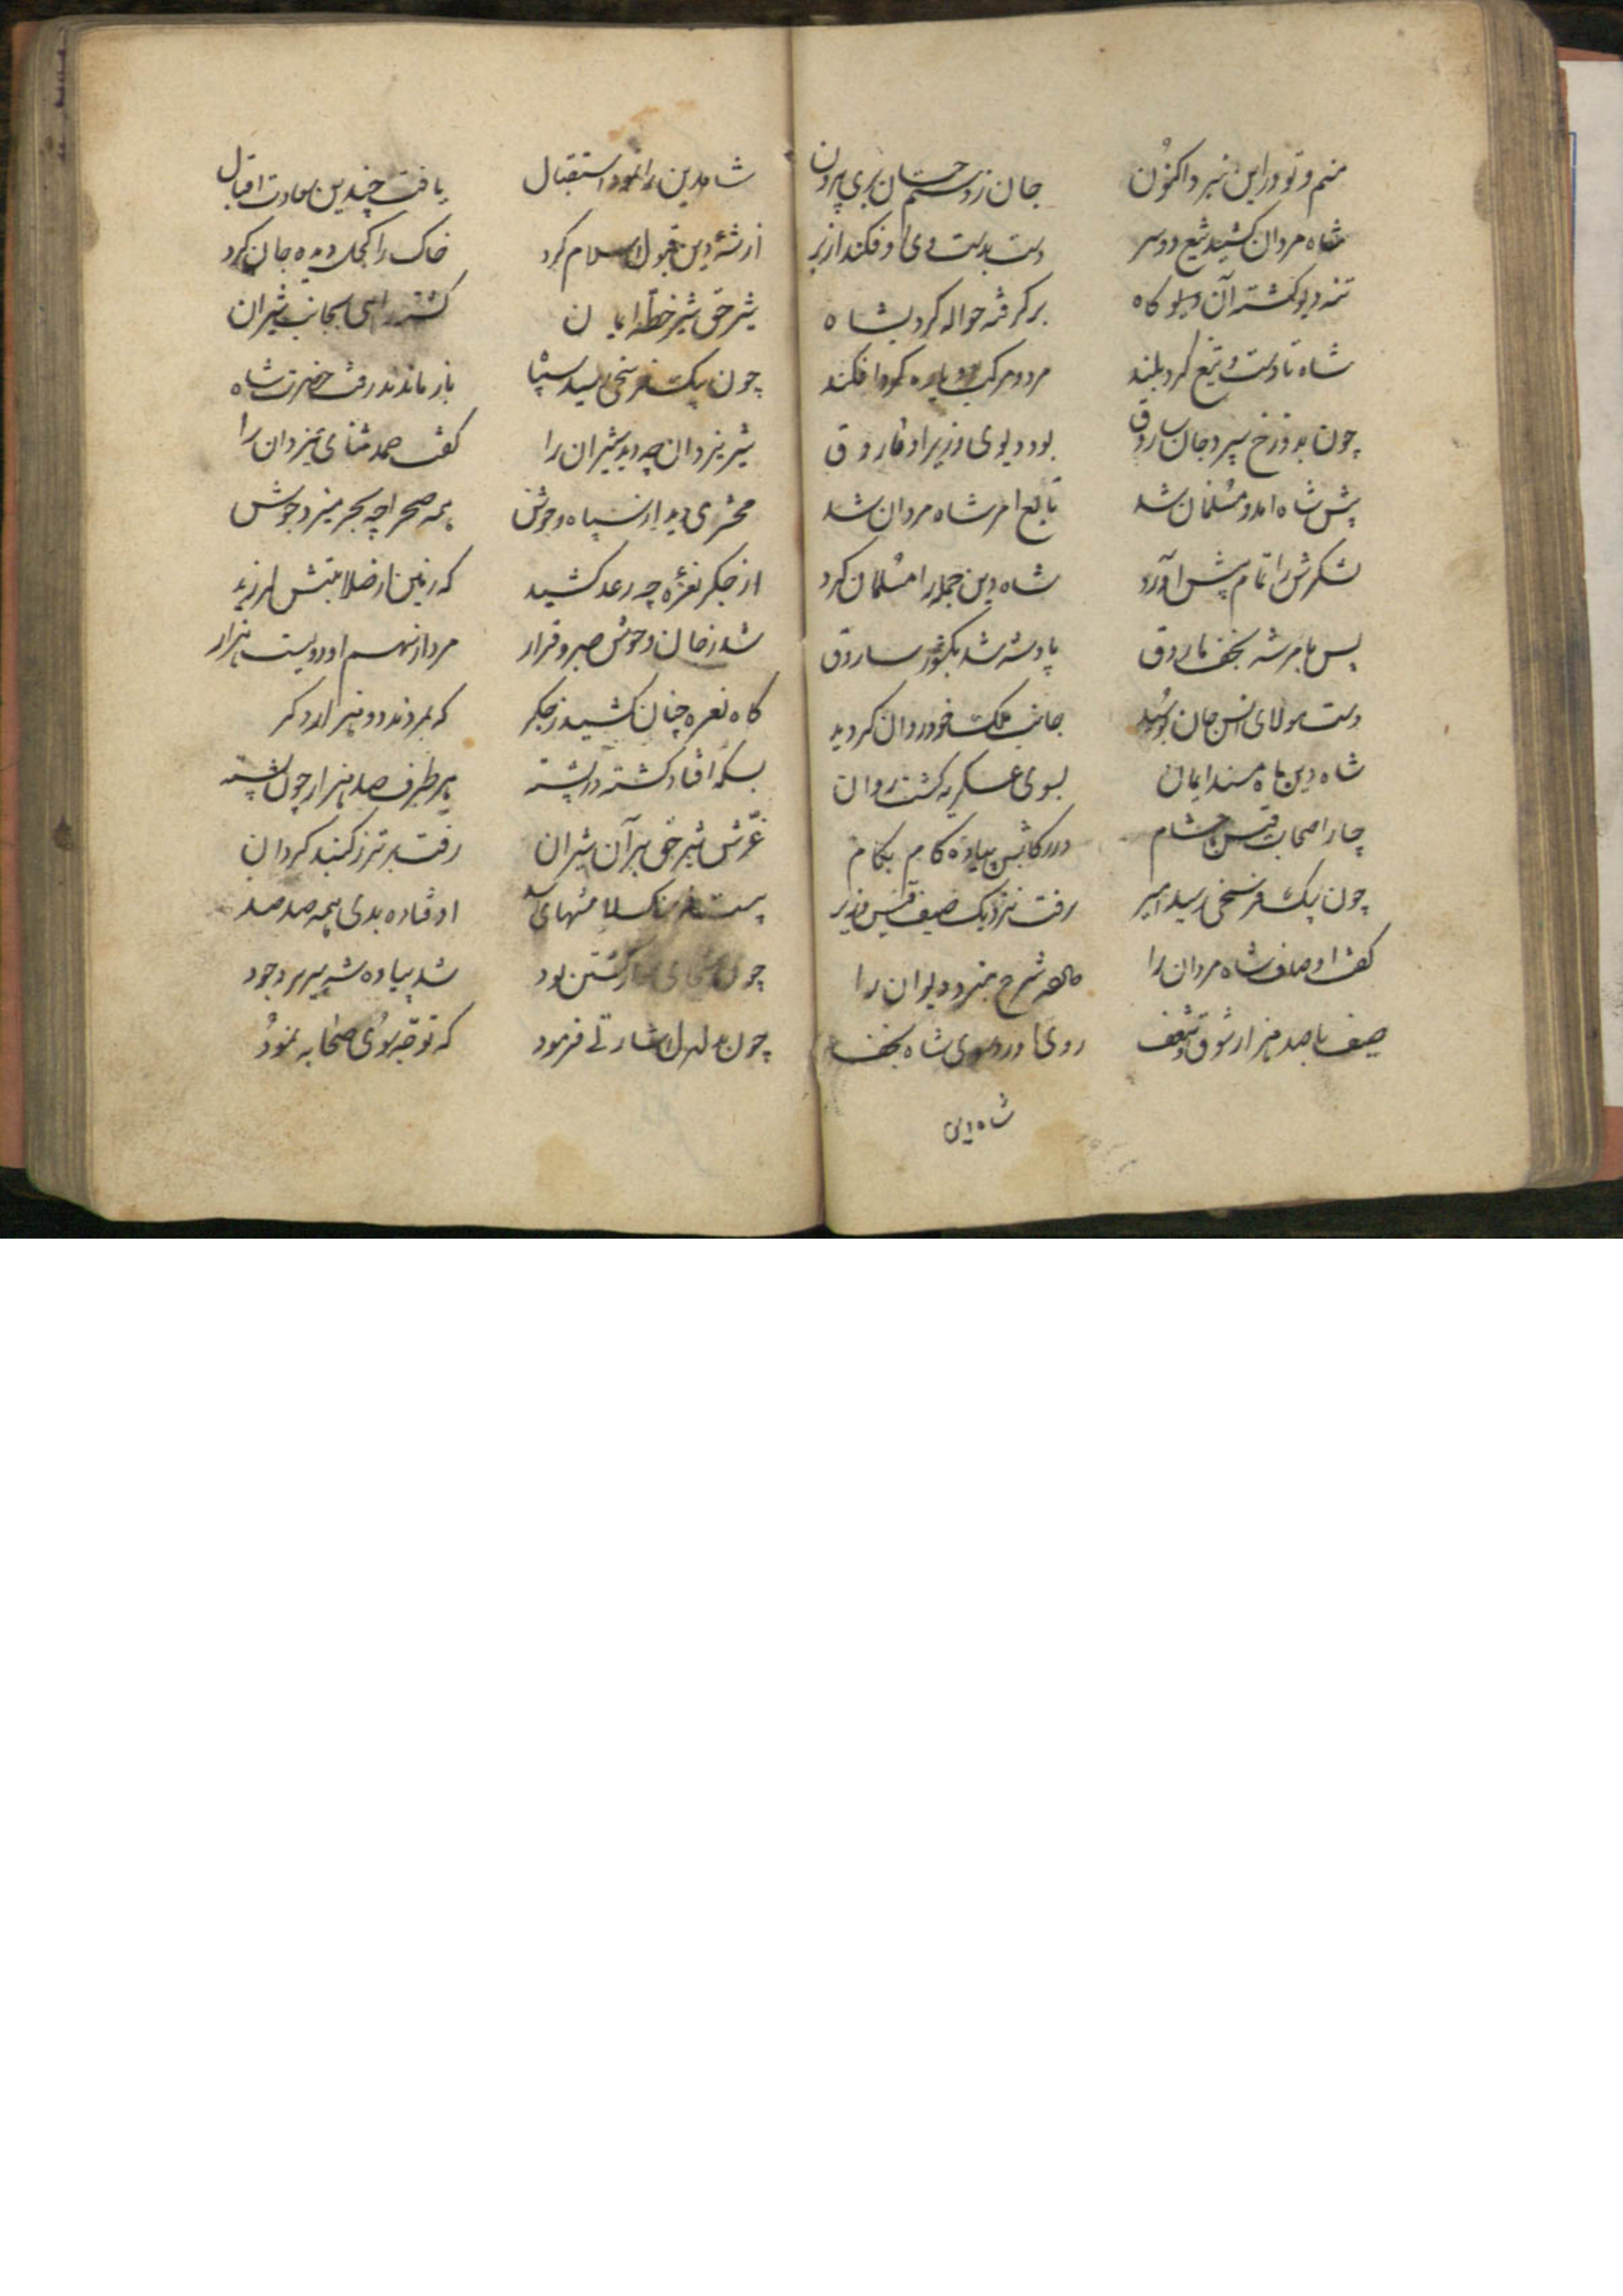 منم و تو در این نبرد اکنون جان ز دستم چسان بری بیرون
شاه مردان کشید تیغ دو سر دست بدست وی او فکند از بر
تنه دیو کشته آن دیو کاه بر گرفته حواله کرد بشاه
شاه تا دست و تیغ کرد بلند مرد و مرکب دو پاره کرد افکند
چون بدوزخ سپرد جان ساروق بود دیوی وزیر او فاروق
پیش شاه آمد و مسلمان شد تابع امر شاه مردان شد
لشکرش را تمام پیش آورد شاه دین جمله را مسلمان کرد
پس بامر شه نجف فاروق پادشه شد بکشور ساروق
دست مولای انس و جان بوسید جانب ملک خود روان گردید
شاه دین ماه مسند ایمان بسوی عسکریه گشت روان
چار اصحاب قیس با حشام در رکابش پیاده گام بگام
چون بیک فرسخی رسید امیر رفت نزدیک ضیف قیس وزیر
گفت اوصاف شاه مردان را شرح نبرد دیوان را
ضیف با صد هزار شوق و شعف روی آورد سوی شاه نجف
شاه دین
شاه دین را نمود استقبال یافت چندین سعادت اقبال
از شه دین قبول اسلام کرد خاک را کحل دیده جان کرد
شیر حق شیر خطه ایمان گشت راهی بجانب شیران
چون بیک فرسخی رسید سپاه باز ماندند رفت حضرت شاه
شیر یزدان چه دید شیران را گفت حمد و ثنای یزدان را
محشری دید از سپاه وحوش همه صحرا چه بحر میزد جوش
از جگر نعره چه رعد کشید که زمین از صلابتش لرزید
شد ز جان وحوش صبر و قرار مرد از سهم او دویست هزار
گاه نعره چنان کشید ز جگر که بمردند دو هزار دگر
بسکه افتاد کشته در پشته هر طرف صد هزار چون پشته
غرش شیر حق بر آن شیران رفت برتر ز گنبد گردان
اوفتاده بدی همه صد صد
چون کشتن بود شد پیاده شه سریر وجود
چون بدلدل اشارتی فرمود که توجه بسوی صحابه نمود